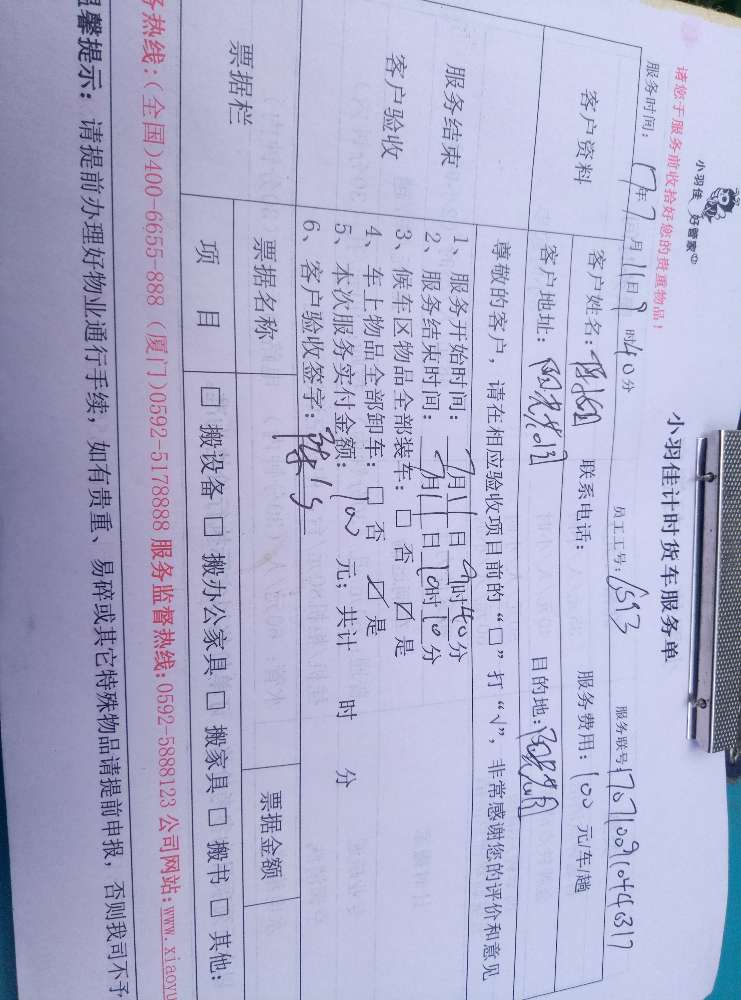 小羽佳 好管家
请您于服务前收拾好您的贵重物品！
小羽佳计时货车服务单
服务时间：17年7月11日9时40分 员工工号：1593 服务联号
客户资料
客户姓名： 联系电话： 服务费用：100元/车/趟
客户地址： 目的地：
服务结束
客户验收
尊敬的客户，请在相应验收项目前的“□”打“√”，非常感谢您的评价和意见
1、服务开始时间：7月11日9时40分
2、服务结束时间：7月11日10时10分
3、候车区物品全部装车：□ 否 ☑ 是
4、车上物品全部卸车：□ 否 ☑ 是
5、本次服务实付金额：100 元；共计 时 分
6、客户验收签字：
票据栏
票据名称 票据金额
项 目 □ 搬设备 □ 搬办公家具 □ 搬家具 □ 搬书 □ 其他：
务热线：(全国)400-6655-888 (厦门)0592-5178888 服务监督热线：0592-5888123 公司网站：www.xiaoyu
温馨提示：请提前办理好物业通行手续，如有贵重、易碎或其它特殊物品请提前申报，否则我司不予